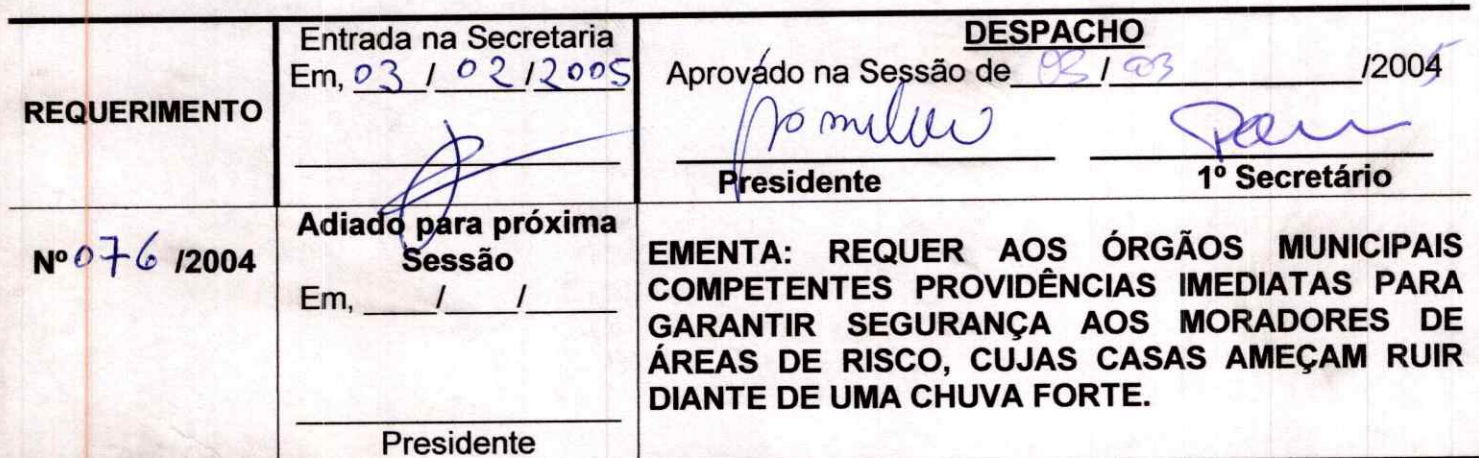 REQUERIMENTO
Entrada na Secretaria
Em, 03 / 02 /2005
DESPACHO
Aprovado na Sessão de / 03 /2005
Presidente
1º Secretário
Nº 076 /2004
Adiado para próxima
Sessão
Em, / /
Presidente
EMENTA: REQUER AOS ÓRGÃOS MUNICIPAIS
COMPETENTES PROVIDÊNCIAS IMEDIATAS PARA
GARANTIR SEGURANÇA AOS MORADORES DE
ÁREAS DE RISCO, CUJAS CASAS AMEÇAM RUIR
DIANTE DE UMA CHUVA FORTE.